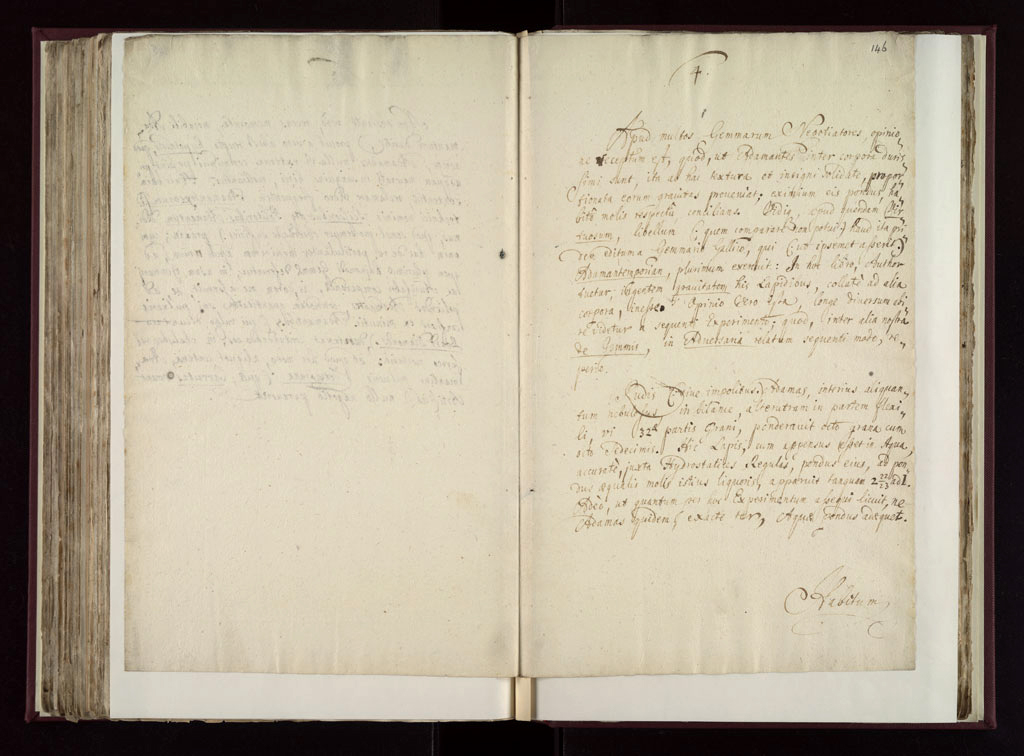 146
4.
Apud multos Gemmarum Negotiatores, opinio
ac receptum est, quod, ut Adamantes inter corpora duris=
simi sunt, ita ab hac textura et insigni soliditate, propor=
tionata eorum gravitas proveniat, eximium eis pondus, ha=
bito molis respectu concilians. Vidi, apud quendam Vir=
tuosum, libellum (quem comparare non potui) haud ita pri=
dem editum a Gemmario Gallico, qui
Adamantem plurimum exercuit: In hoc libro, Author
tuetur, ingentem gravitatem his Lapidibus, collatis ad alia
corpora, inesse. Opinio vero ipsa, longe diversum ibi
videtur a sequenti Experimento; quod, inter alia nostra
de Gemmis, in Adversaria relatum sequenti modo, re=
perio.
Rudis sive impolitus Adamas, interius aliquan=
tum nebulosus in bilance, alterutram in partem flexi=
li, vi 32ae partis Grani, ponderavit octo grana cum
octo sedecimis. Hic Lapis, cum appensus esset in Aqua
accurate, juxta Hydrostaticas Regulas, pondus eius, ad pon=
dus aequalis molis istius liquoris, apparuit tanquam 2 ad 1.
Adeo, ut quantum per hoc Experimentum assequi licuit, ne
Adamas quidem exacte ter, Aquae pondus adaequet.
Habitum